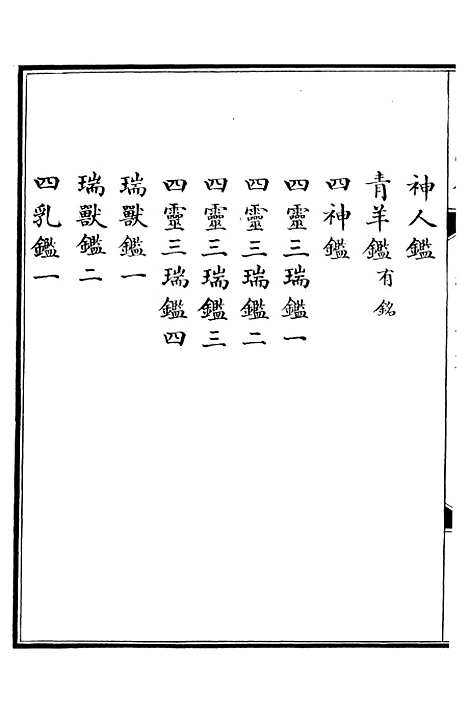 神人鑑
青羊鑑有銘
四神鑑
四靈三瑞鑑一
四靈三瑞鑑二
四靈三瑞鑑三
四靈三瑞鑑四
瑞獸鑑一
瑞獸鑑二
四乳鑑一